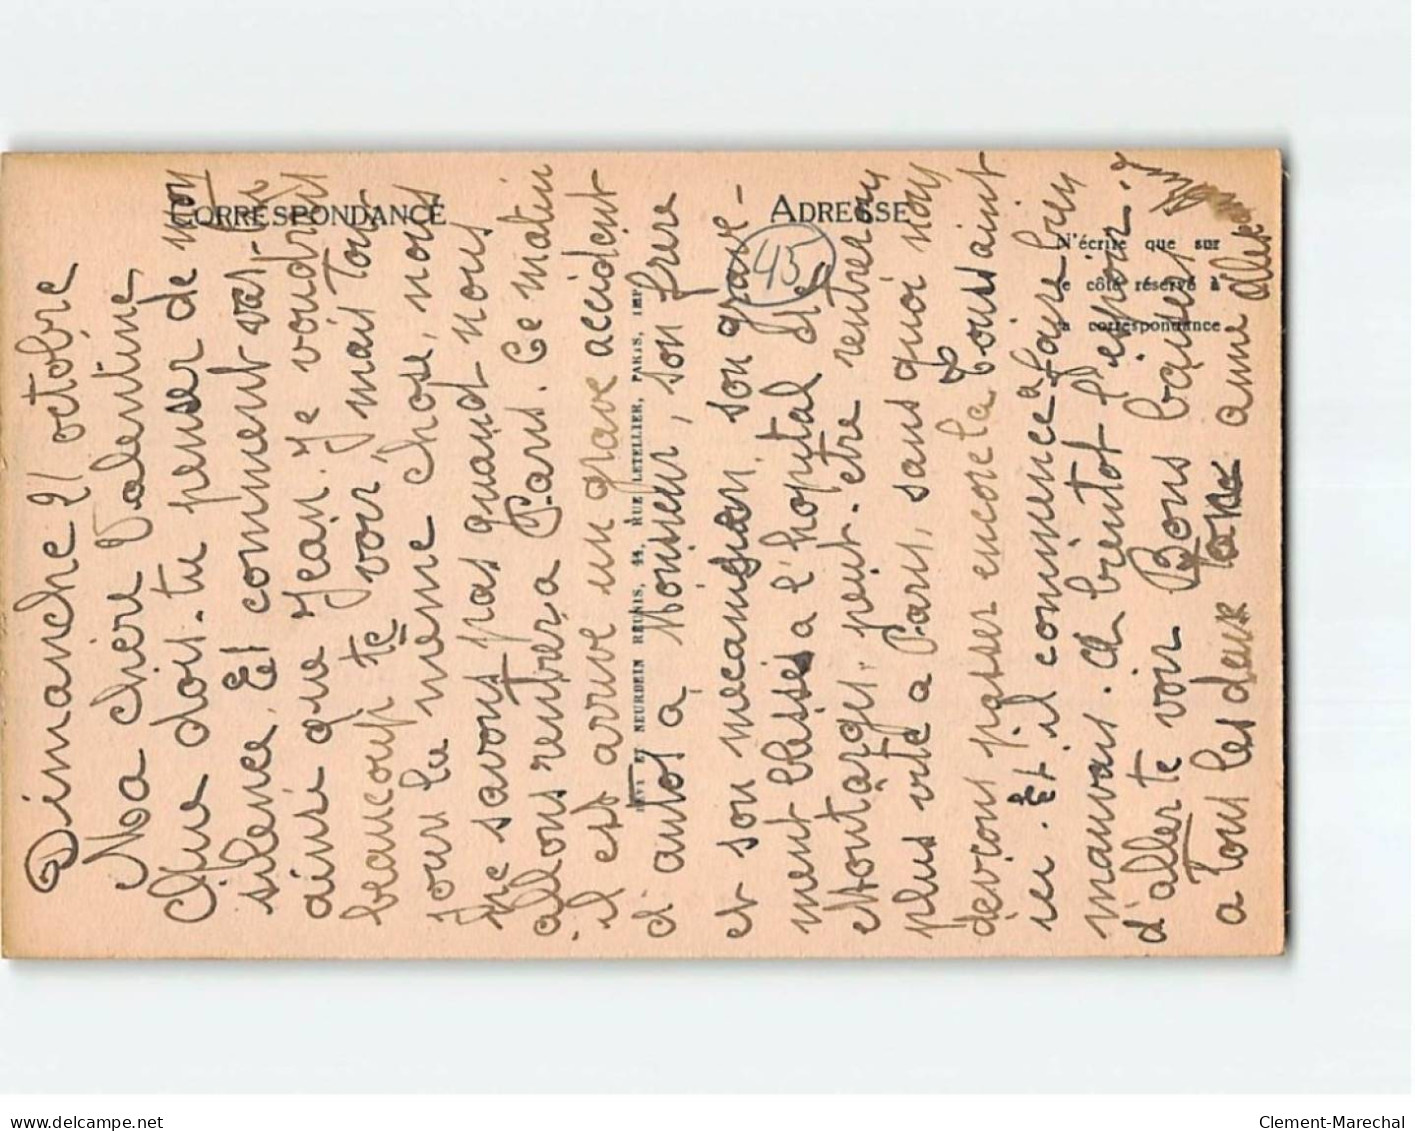 Dimanche 21 octobre
Ma chère Valentine
Que dois-tu penser de mon
silence. Et comment vas-tu
ainsi que Jean. Je voudrais
beaucoup te voir, mais tou-
jours la meme chose, nous
ne savons pas quand nous
allons rentrer a Paris. Ce matin
il est arrive un grave accident
d'autos a Monsieur, son frere
et son mecanicien, son grave-
ment blesses a l'hopital de
Montargis, peut-etre rentrerons
plus vite a Paris, sans quoi nous
devrons passer encore la Toussaint
ici. Et il commence a faire bien
mauvais. A bientot l'espoir
d'aller te voir Bons baisers
a tous les deux ton amie
CORRESPONDANCE
ADRESSE
N'écrire que sur
le côté réservé à
la correspondance
45
LEVY ET NEURDEIN REUNIS, 44, RUE LETELLIER, PARIS, IMP.
delcampe.net
Clement-Marechal